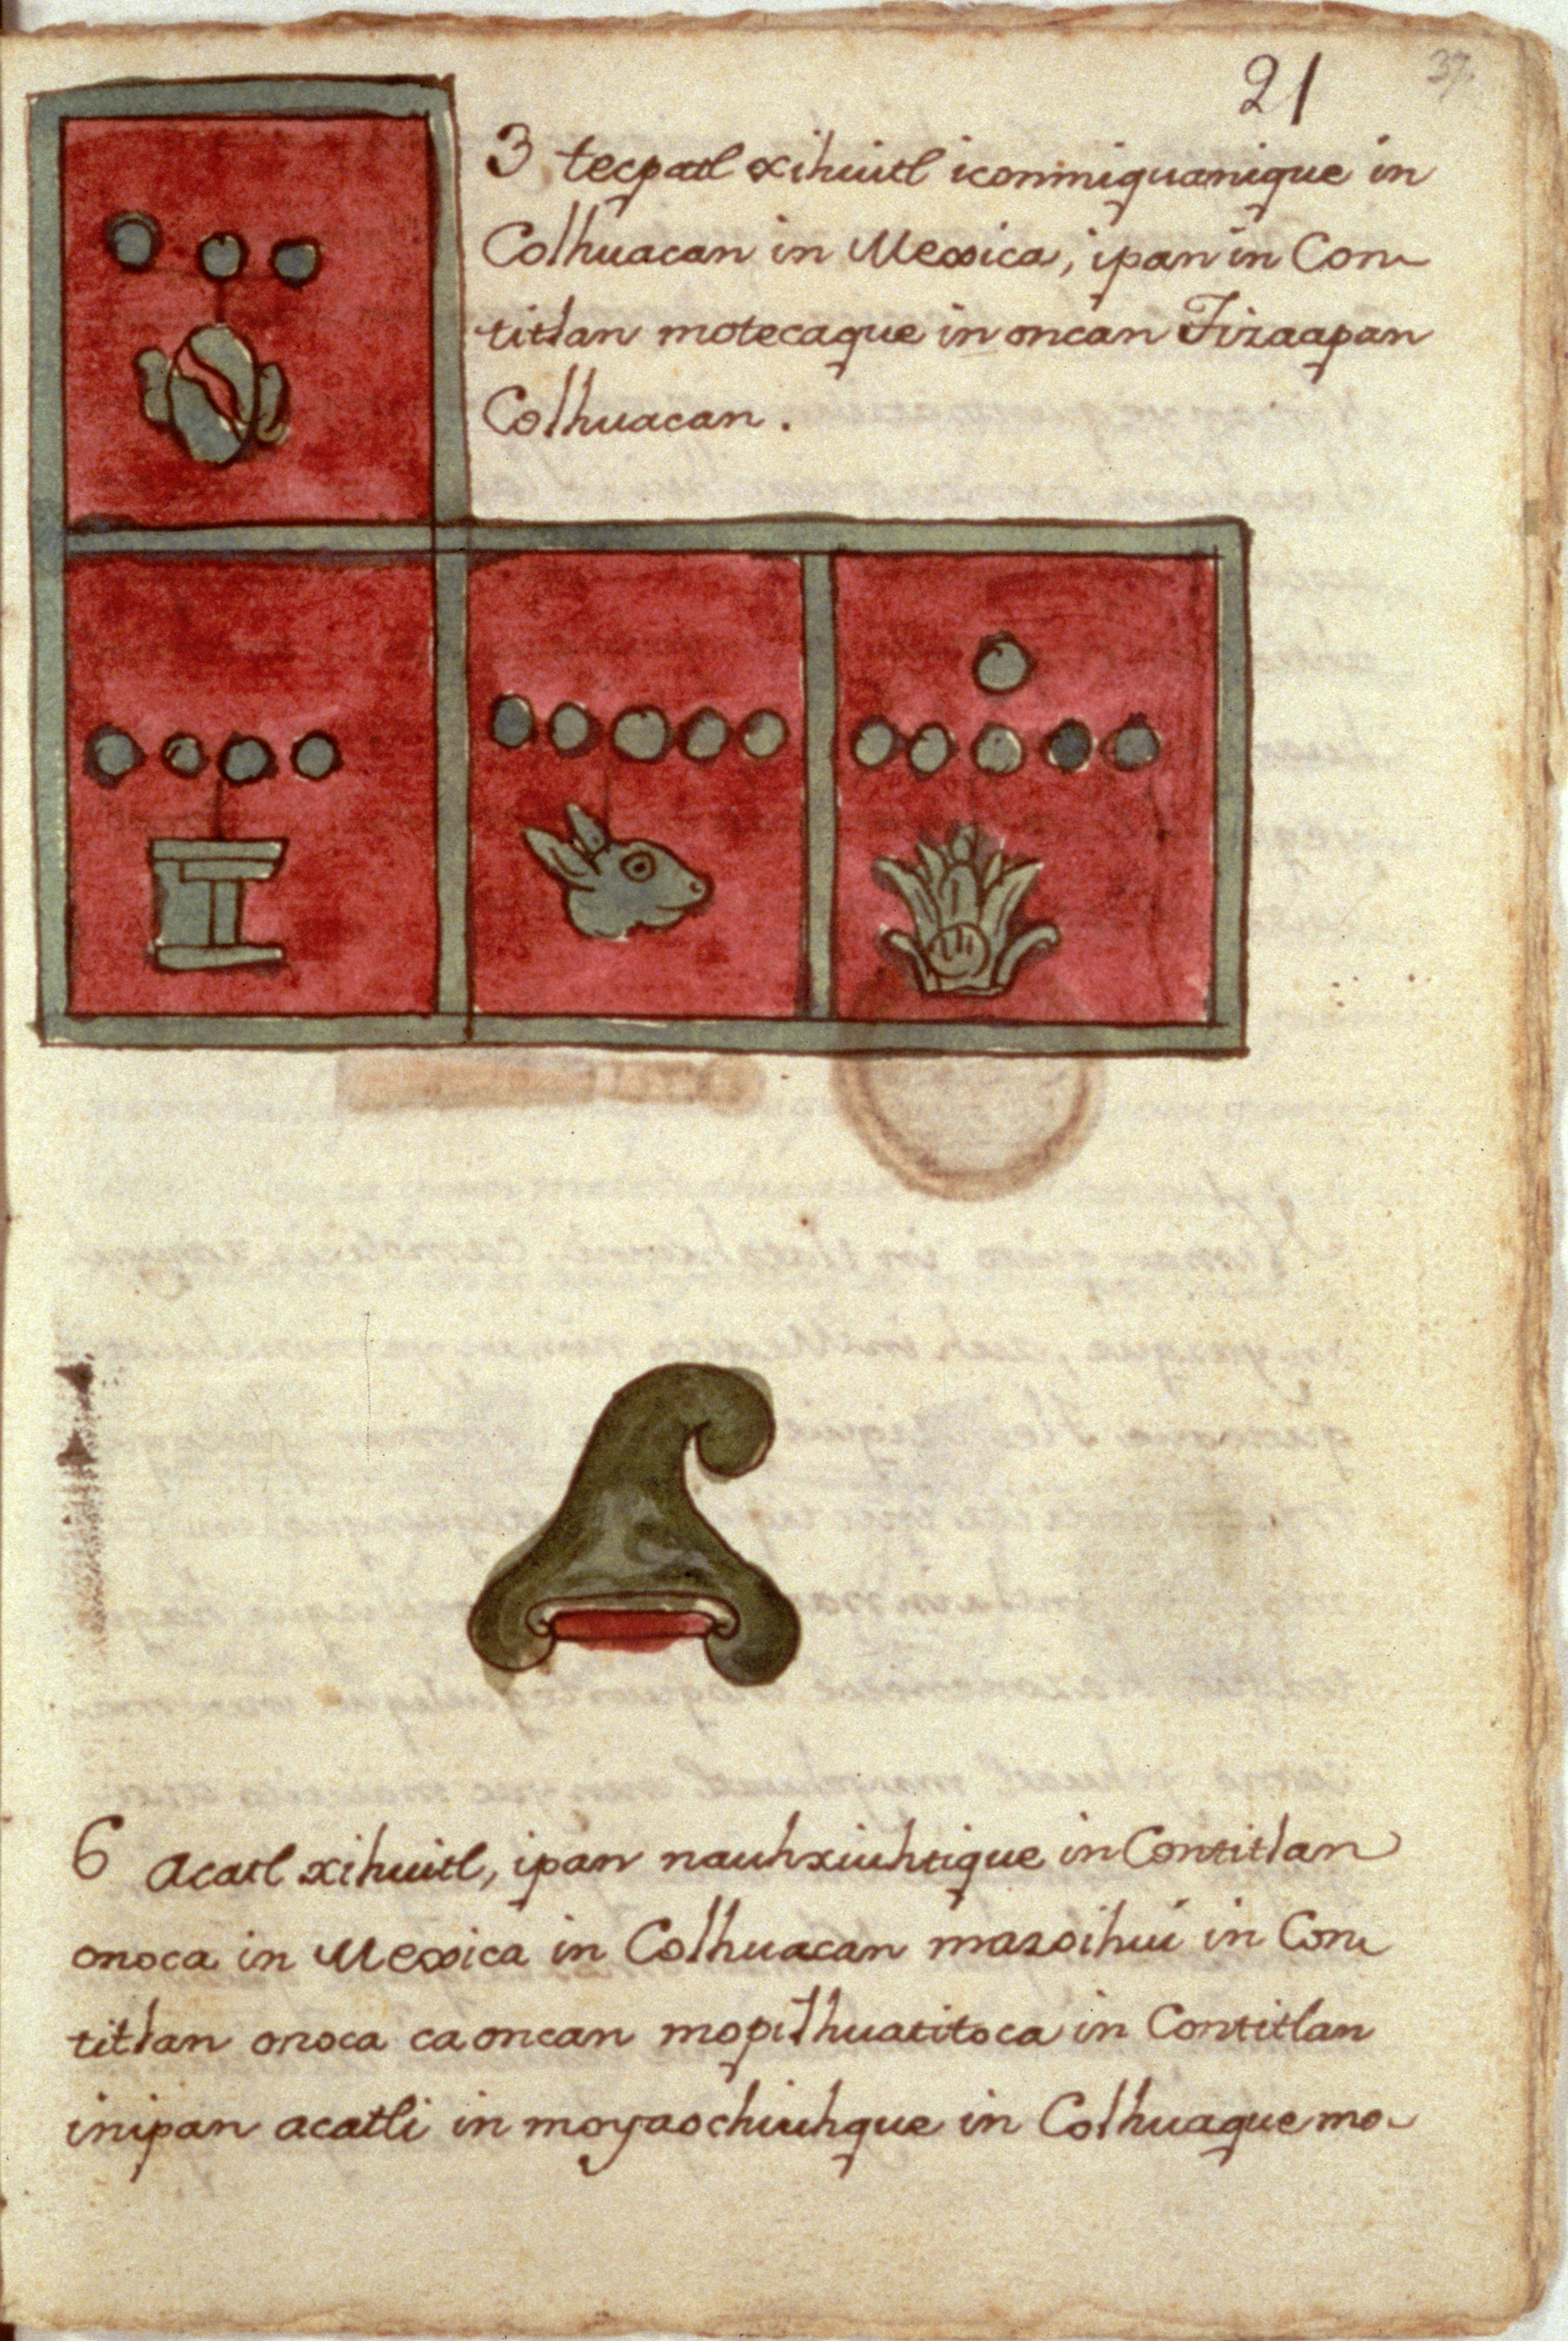 21
37
3 tecpatl xihuitl iconmiquanique in
Colhuacan in Mexica, ipan in Con
titlan motecaque in oncan Tizaapan
Colhuacan.
6 Acatl xihuitl, ipan nauhxiuhtique in Contitlan
onoca in Mexica in Colhuacan mazoihui in Con
titlan onoca ca oncan mopilhuatitoca in Contitlan
inipan acatli in moyaochiuhque in Colhuaque mo